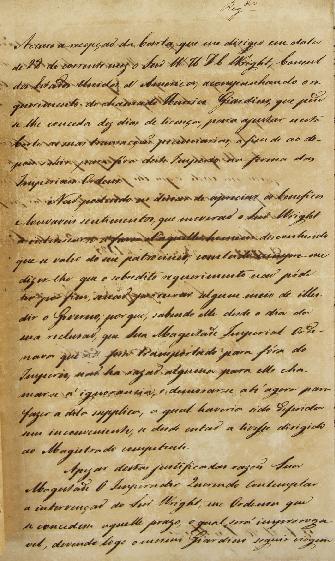 Accuso a recepção da Carta, que me dirigio em data
de do corrente mez o Snr. Wright, Consul
dos Estados Unidos d'America, acompanhando o re-
querimento do chamado Giardini, que pede
se lhe conceda dez dias de licença, para ajustar nesta
Corte as suas transacções pecuniarias, a fim de ao de-
pois sahir para fóra deste Imperio na forma das
Imperiaes Ordens.
Não podendo eu deixar de apreciar os beneficos
e louvaveis sentimentos, que moverão o Snr. Wright
a interessar-se
que a valer do seu patrocinio,
dizer-lhe que o sobredito requerimento não pode
ter por fim senão procurar algum meio de illu-
dir o Governo, porque, sabendo elle desde o dia da
sua reclusão, que Sua Magestade Imperial Orde-
nava que fosse transportado para fóra do
Imperio, não ha razão alguma para elle cha-
mar-se á ignorancia, e demorar-se até agora para
fazer a dita supplica, a qual haveria sido deferida
sem inconveniente, se desde então a tivesse dirigido
ao Magistrado competente.
Apezar destas justificadas razões Sua
Magestade O Imperador Querendo contemplar
a intervenção do Snr. Wright, me Ordenou que
se concedem aquelle prazo, o qual será improroga-
vel, devendo logo o mesmo Giardini seguir viagem